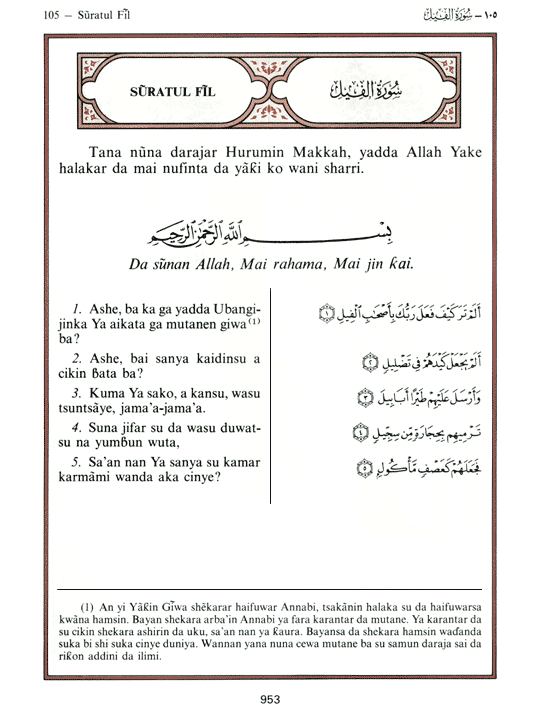 105 — Sūratul Fīl
١٠٥ — سُورَةُ الفِيل
SŪRATUL FĪL
سُورَةُ الفِيل
Tana nūna darajar Hurumin Makkah, yadda Allah Yake
halakar da mai nufinta da yãƙi ko wani sharri.
بِسْمِ اللَّهِ الرَّحْمَٰنِ الرَّحِيمِ
Da sũnan Allah, Mai rahama, Mai jin ƙai.
1. Ashe, ba ka ga yadda Ubangi-
jinka Ya aikata ga mutanen giwa⁽¹⁾
ba?
2. Ashe, bai sanya kaidinsu a
cikin ɓata ba?
3. Kuma Ya sako, a kansu, wasu
tsuntsãye, jama'a-jama'a.
4. Suna jifar su da wasu duwat-
su na yumɓun wuta,
5. Sa'an nan Ya sanya su kamar
karmãmi wanda aka cinye?
أَلَمْ تَرَ كَيْفَ فَعَلَ رَبُّكَ بِأَصْحَابِ الْفِيلِ ﴿١﴾
أَلَمْ يَجْعَلْ كَيْدَهُمْ فِي تَضْلِيلٍ ﴿٢﴾
وَأَرْسَلَ عَلَيْهِمْ طَيْرًا أَبَابِيلَ ﴿٣﴾
تَرْمِيهِم بِحِجَارَةٍ مِّن سِجِّيلٍ ﴿٤﴾
فَجَعَلَهُمْ كَعَصْفٍ مَّأْكُولٍ ﴿٥﴾
(1) An yi Yãƙin Gĩwa shẽkarar haifuwar Annabi, tsakãnin halaka su da haifuwarsa
kwãna hamsin. Bayan shekara arba'in Annabi ya fara karantar da mutane. Ya karantar da
su cikin shekara ashirin da uku, sa'an nan ya ƙaura. Bayansa da shekara hamsin waɗanda
suka bi shi suka cinye duniya. Wannan yana nuna cewa mutane ba su samun daraja sai da
riƙon addini da ilimi.
953